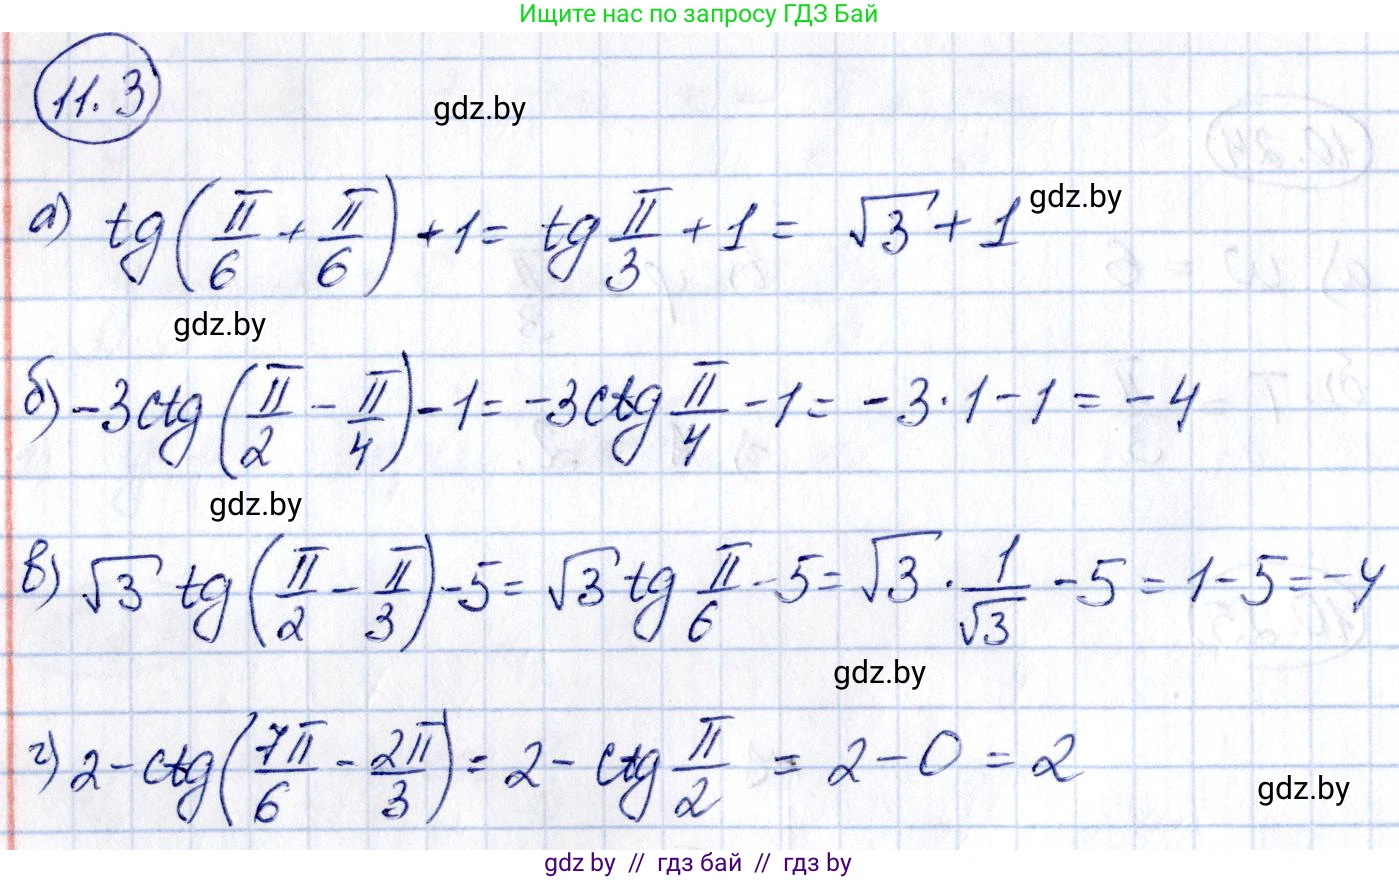 Ищите нас по запросу ГДЗ Бай
11.3
gdz.by
а) tg(π/6 + π/6) + 1 = tg π/3 + 1 = √3 + 1
gdz.by
gdz.by
б) -3ctg(π/2 - π/4) - 1 = -3ctg π/4 - 1 = -3·1 - 1 = -4
gdz.by
в) √3 tg(π/2 - π/3) - 5 = √3 tg π/6 - 5 = √3 · 1/√3 - 5 = 1 - 5 = -4
gdz.by
г) 2 - ctg(7π/6 - 2π/3) = 2 - ctg π/2 = 2 - 0 = 2
gdz.by
gdz by // гдз бай // гдз by